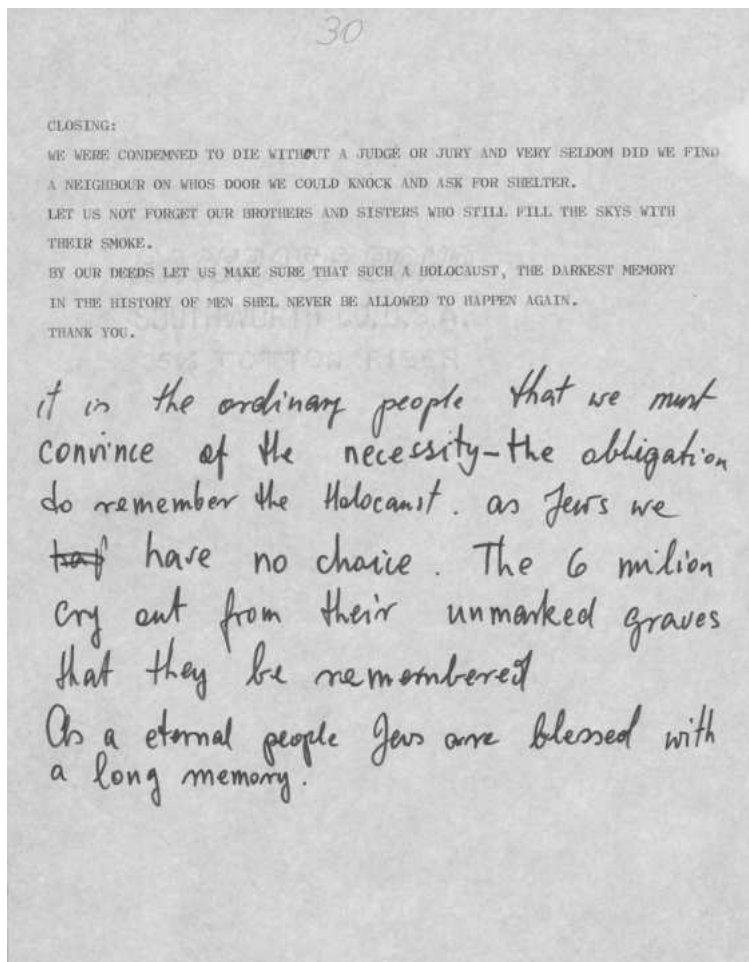 30
CLOSING:
WE WERE CONDEMNED TO DIE WITHOUT A JUDGE OR JURY AND VERY SELDOM DID WE FIND
A NEIGHBOUR ON WHOS DOOR WE COULD KNOCK AND ASK FOR SHELTER.
LET US NOT FORGET OUR BROTHERS AND SISTERS WHO STILL FILL THE SKYS WITH
THEIR SMOKE.
BY OUR DEEDS LET US MAKE SURE THAT SUCH A HOLOCAUST, THE DARKEST MEMORY
IN THE HISTORY OF MEN SHEL NEVER BE ALLOWED TO HAPPEN AGAIN.
THANK YOU.
it is the ordinary people that we must
convince of the necessity - the obligation
to remember the Holocaust. as Jews we
have no choice. The 6 milion
cry out from their unmarked graves
that they be remembered
As a eternal people Jews are blessed with
a long memory.